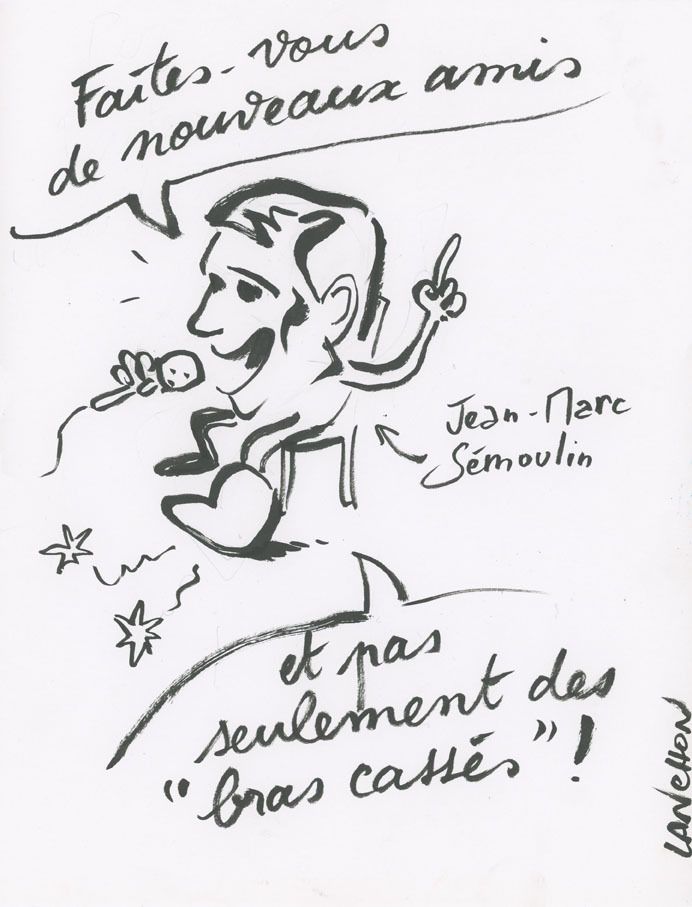 Faites-vous
de nouveaux amis
Jean-Marc
Sémoulin
et pas
seulement des
"bras cassés"!
LANCHON